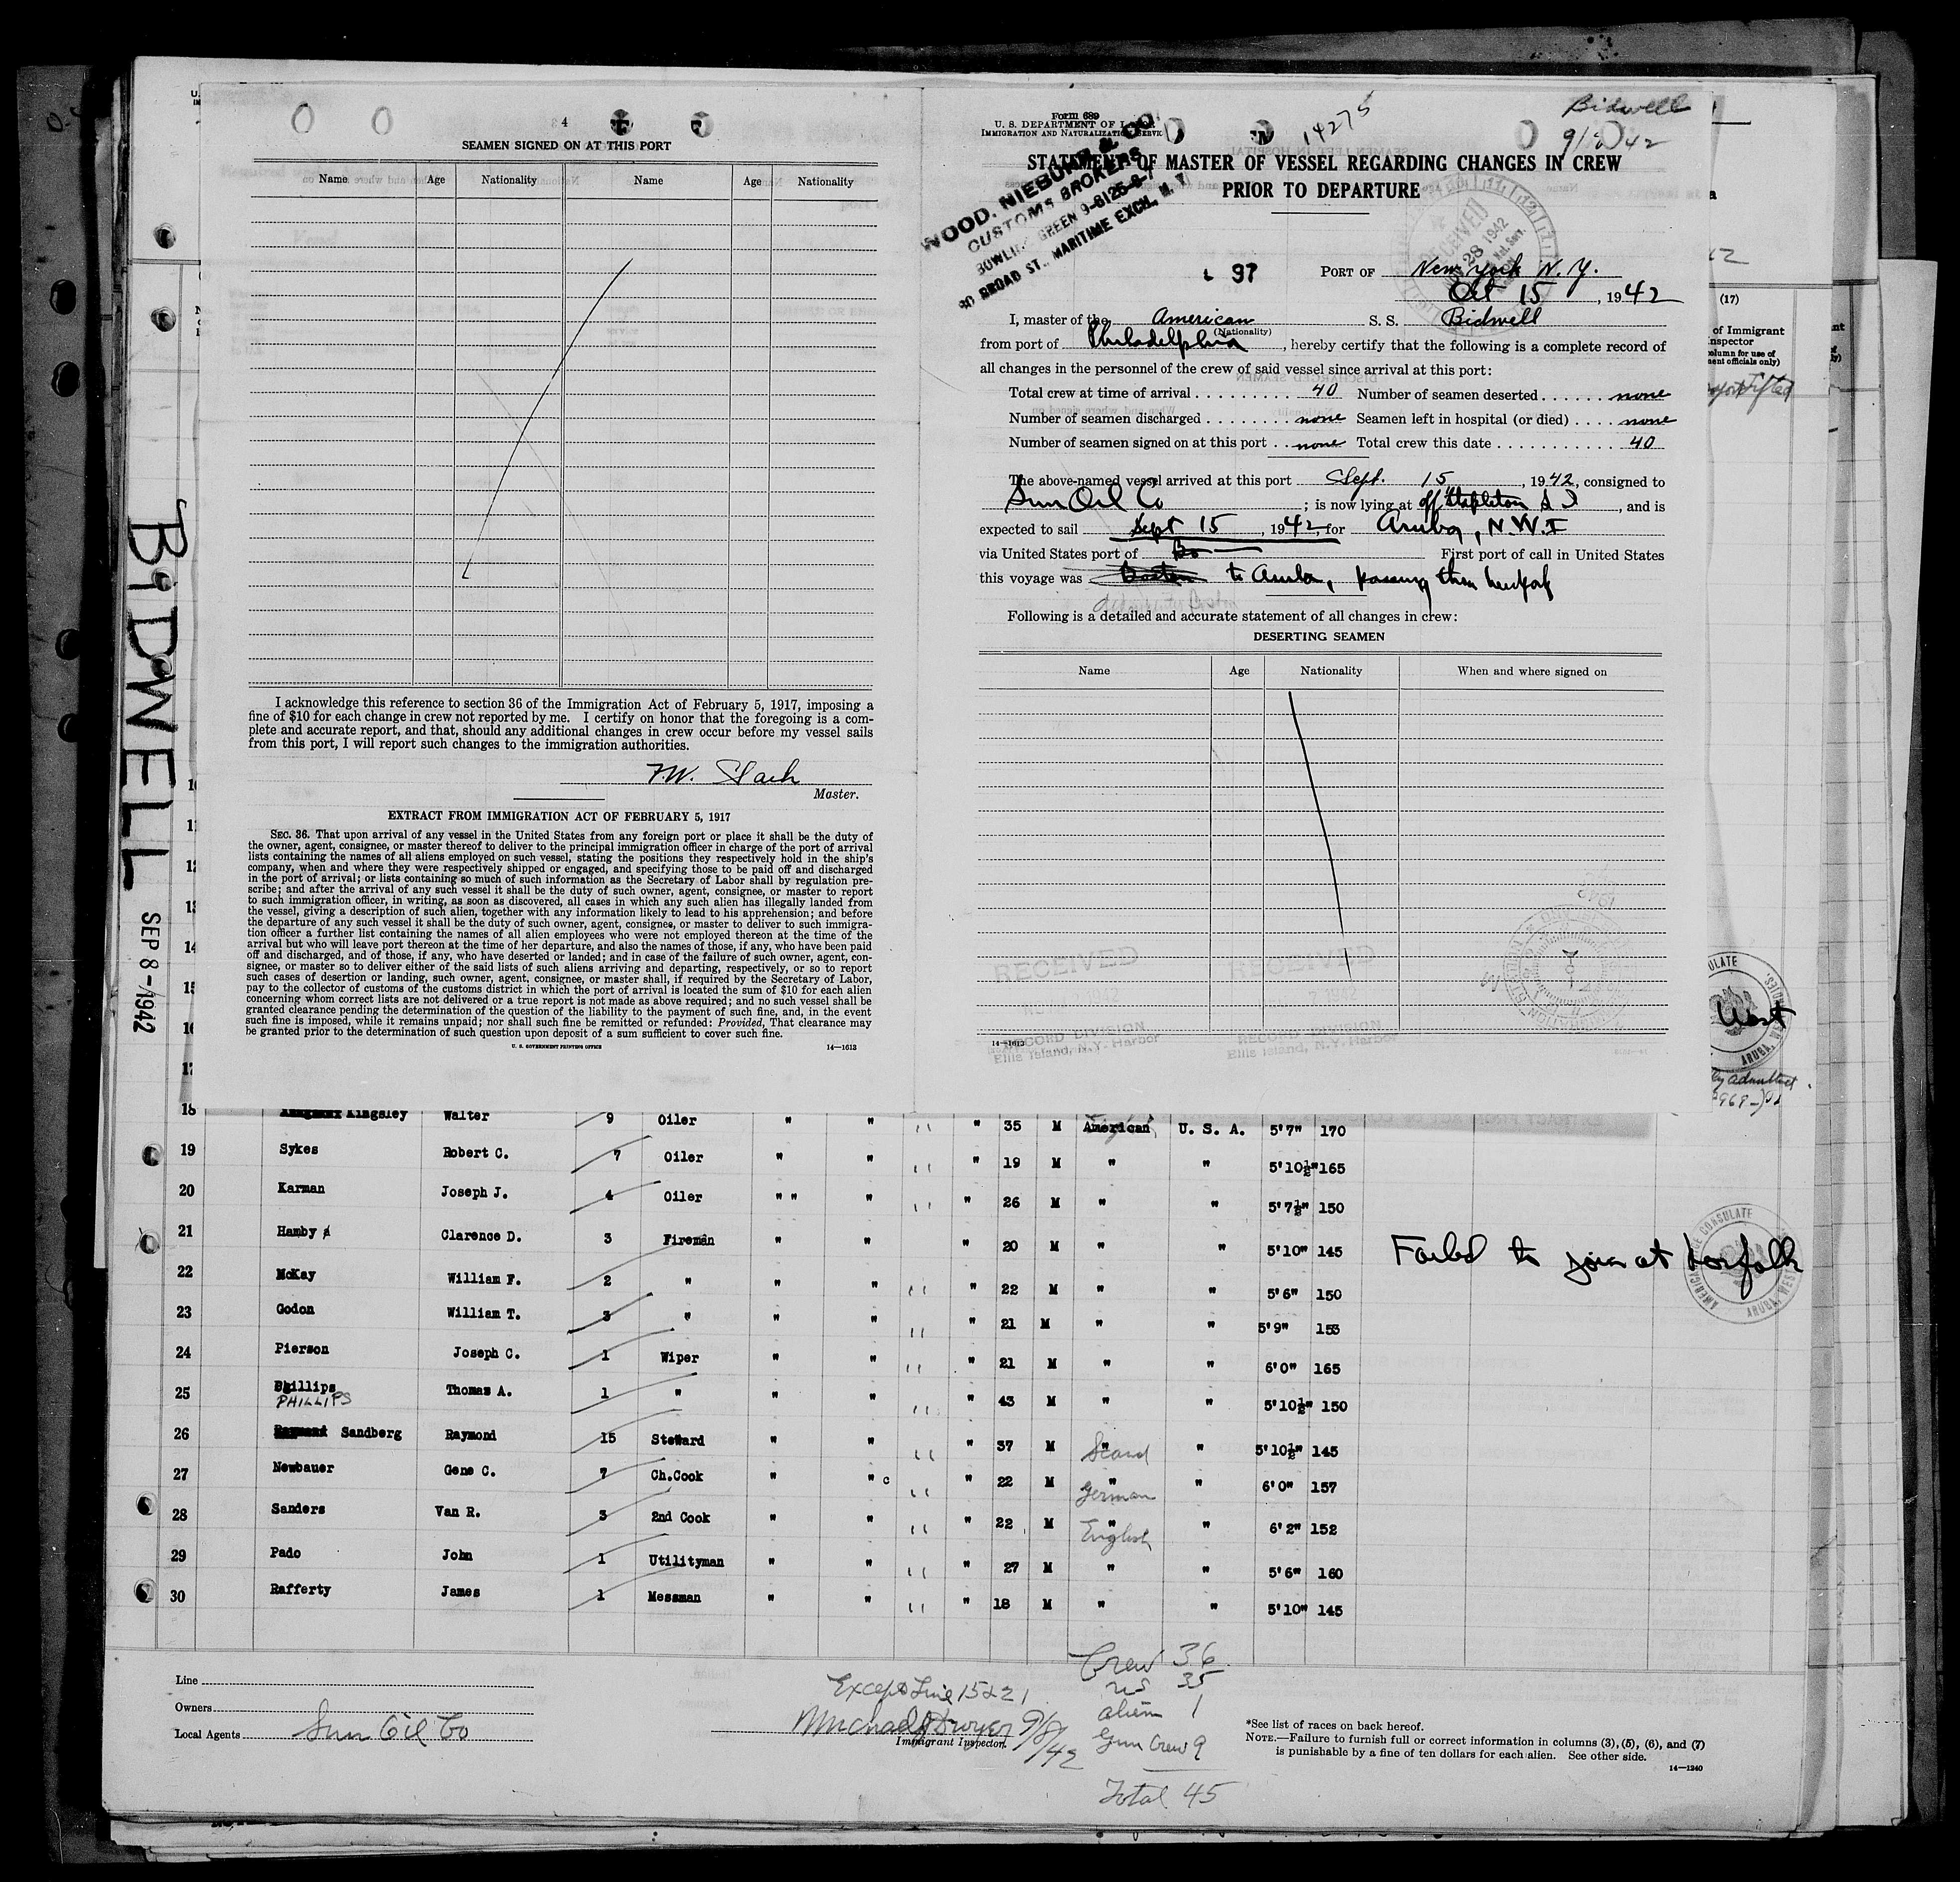 4
SEAMEN SIGNED ON AT THIS PORT
Name Age Nationality Name Age Nationality
I acknowledge this reference to section 36 of the Immigration Act of February 5, 1917, imposing a
fine of $10 for each change in crew not reported by me. I certify on honor that the foregoing is a com-
plete and accurate report, and that, should any additional changes in crew occur before my vessel sails
from this port, I will report such changes to the immigration authorities.
Master.
EXTRACT FROM IMMIGRATION ACT OF FEBRUARY 5, 1917
SEC. 36. That upon arrival of any vessel in the United States from any foreign port or place it shall be the duty of
the owner, agent, consignee, or master thereof to deliver to the principal immigration officer in charge of the port of arrival
lists containing the names of all aliens employed on such vessel, stating the positions they respectively hold in the ship's
company, when and where they were respectively shipped or engaged, and specifying those to be paid off and discharged
in the port of arrival; or lists containing so much of such information as the Secretary of Labor shall by regulation pre-
scribe; and after the arrival of any such vessel it shall be the duty of such owner, agent, consignee, or master to report
to such immigration officer, in writing, as soon as discovered, all cases in which any such alien has illegally landed from
the vessel, giving a description of such alien, together with any information likely to lead to his apprehension; and before
the departure of any such vessel it shall be the duty of such owner, agent, consignee, or master to deliver to such immigra-
tion officer a further list containing the names of all alien employees who were not employed thereon at the time of the
arrival but who will leave port thereon at the time of her departure, and also the names of those, if any, who have been paid
off and discharged, and of those, if any, who have deserted or landed; and in case of the failure of such owner, agent, con-
signee, or master so to deliver either of the said lists of such aliens arriving and departing, respectively, or so to report
such cases of desertion or landing, such owner, agent, consignee, or master shall, if required by the Secretary of Labor,
pay to the collector of customs of the customs district in which the port of arrival is located the sum of $10 for each alien
concerning whom correct lists are not delivered or a true report is not made as above required; and no such vessel shall be
granted clearance pending the determination of the question of the liability to the payment of such fine, and, in the event
such fine is imposed, while it remains unpaid; nor shall such fine be remitted or refunded: Provided, That clearance may
be granted prior to the determination of such question upon deposit of a sum sufficient to cover such fine.
U. S. GOVERNMENT PRINTING OFFICE 14—1613
Form 689
U. S. DEPARTMENT OF LABOR
IMMIGRATION AND NATURALIZATION SERVICE
14275
Bidwell
STATEMENT OF MASTER OF VESSEL REGARDING CHANGES IN CREW
PRIOR TO DEPARTURE
WOOD, NIEBUHR & CO
CUSTOMS BROKERS
BOWLING GREEN 9-8125-6-7
80 BROAD ST., MARITIME EXCH., N. Y.
RECEIVED
28 1942
97 PORT OF New York N. Y.
Oct 15, 1942
I, master of the American S. S. Bidwell
(Nationality)
from port of Philadelphia, hereby certify that the following is a complete record of
all changes in the personnel of the crew of said vessel since arrival at this port:
Total crew at time of arrival 40 Number of seamen deserted none
Number of seamen discharged none Seamen left in hospital (or died) none
Number of seamen signed on at this port none Total crew this date 40
The above-named vessel arrived at this port Sept. 15, 1942, consigned to
Sun Oil Co; is now lying at off Stapleton S I, and is
expected to sail Sept 15, 1942, for Aruba, N.W.I
via United States port of Bo First port of call in United States
this voyage was Boston to Aruba, passing thru
Following is a detailed and accurate statement of all changes in crew:
DESERTING SEAMEN
Name Age Nationality When and where signed on
RECEIVED RECEIVED
RECORD DIVISION RECORD DIVISION
Ellis Island, N.Y. Harbor Ellis Island, N.Y. Harbor
14—1613
BIDWELL
SEP 8-1942
(17)
of Immigrant
Inspector
column for use of
ment officials only)
West
18 Kingsley Walter 9 Oiler " " " " 35 M American U. S. A. 5'7" 170
19 Sykes Robert C. 7 Oiler " " " " 19 M " " 5'10½" 165
20 Karman Joseph J. 4 Oiler " " " " " 26 M " " 5'7½" 150
21 Hamby Clarence D. 3 Fireman " " " 20 M " " 5'10" 145 Failed to join at Norfolk
22 McKay William F. 2 " " " " " 22 M " " 5'6" 150
23 Godon William T. 3 " " " " " 21 M " " 5'9" 153
24 Pierson Joseph C. 1 Wiper " " " " 21 M " " 6'0" 165
25 Phillips Thomas A. 1 " " " " " 43 M " " 5'10½" 150
PHILLIPS
26 Raymond Sandberg Raymond 15 Steward " " " " 37 M " Scand " 5'10½" 145
27 Newbauer Gene C. 7 Ch.Cook " " c " " 22 M " German " 6'0" 157
28 Sanders Van R. 3 2nd Cook " " " " 22 M " English " 6'2" 152
29 Pado John 1 Utilityman " " " " 27 M " " 5'6" 160
30 Rafferty James 1 Messman " " " " 18 M " " 5'10" 145
AMERICAN CONSULATE
ARUBA, WEST
Line
Owners
Local Agents Sun Oil Co
Except Line 15 & 21
Michael J Dwyer 9/8/42
Immigrant Inspector.
Crew 36
US 35
alien 1
Gun Crew 9
Total 45
*See list of races on back hereof.
NOTE.—Failure to furnish full or correct information in columns (3), (5), (6), and (7)
is punishable by a fine of ten dollars for each alien. See other side.
14—1240